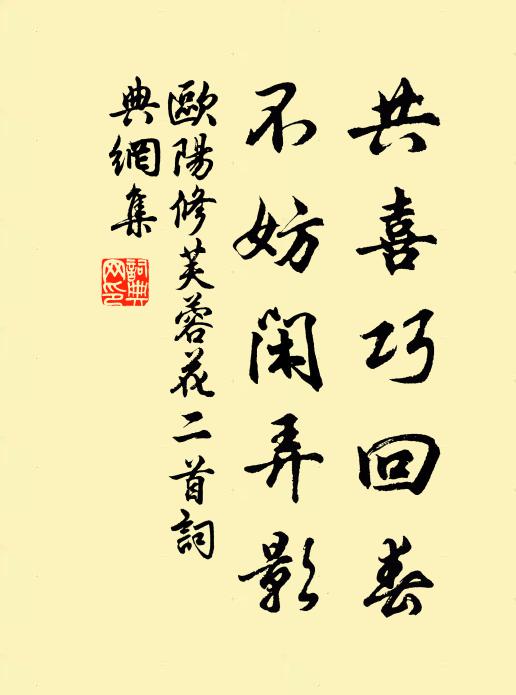 共喜巧回春
不妨閑弄影
歐陽修芙蓉花二首詞
典網集
詞典
网印